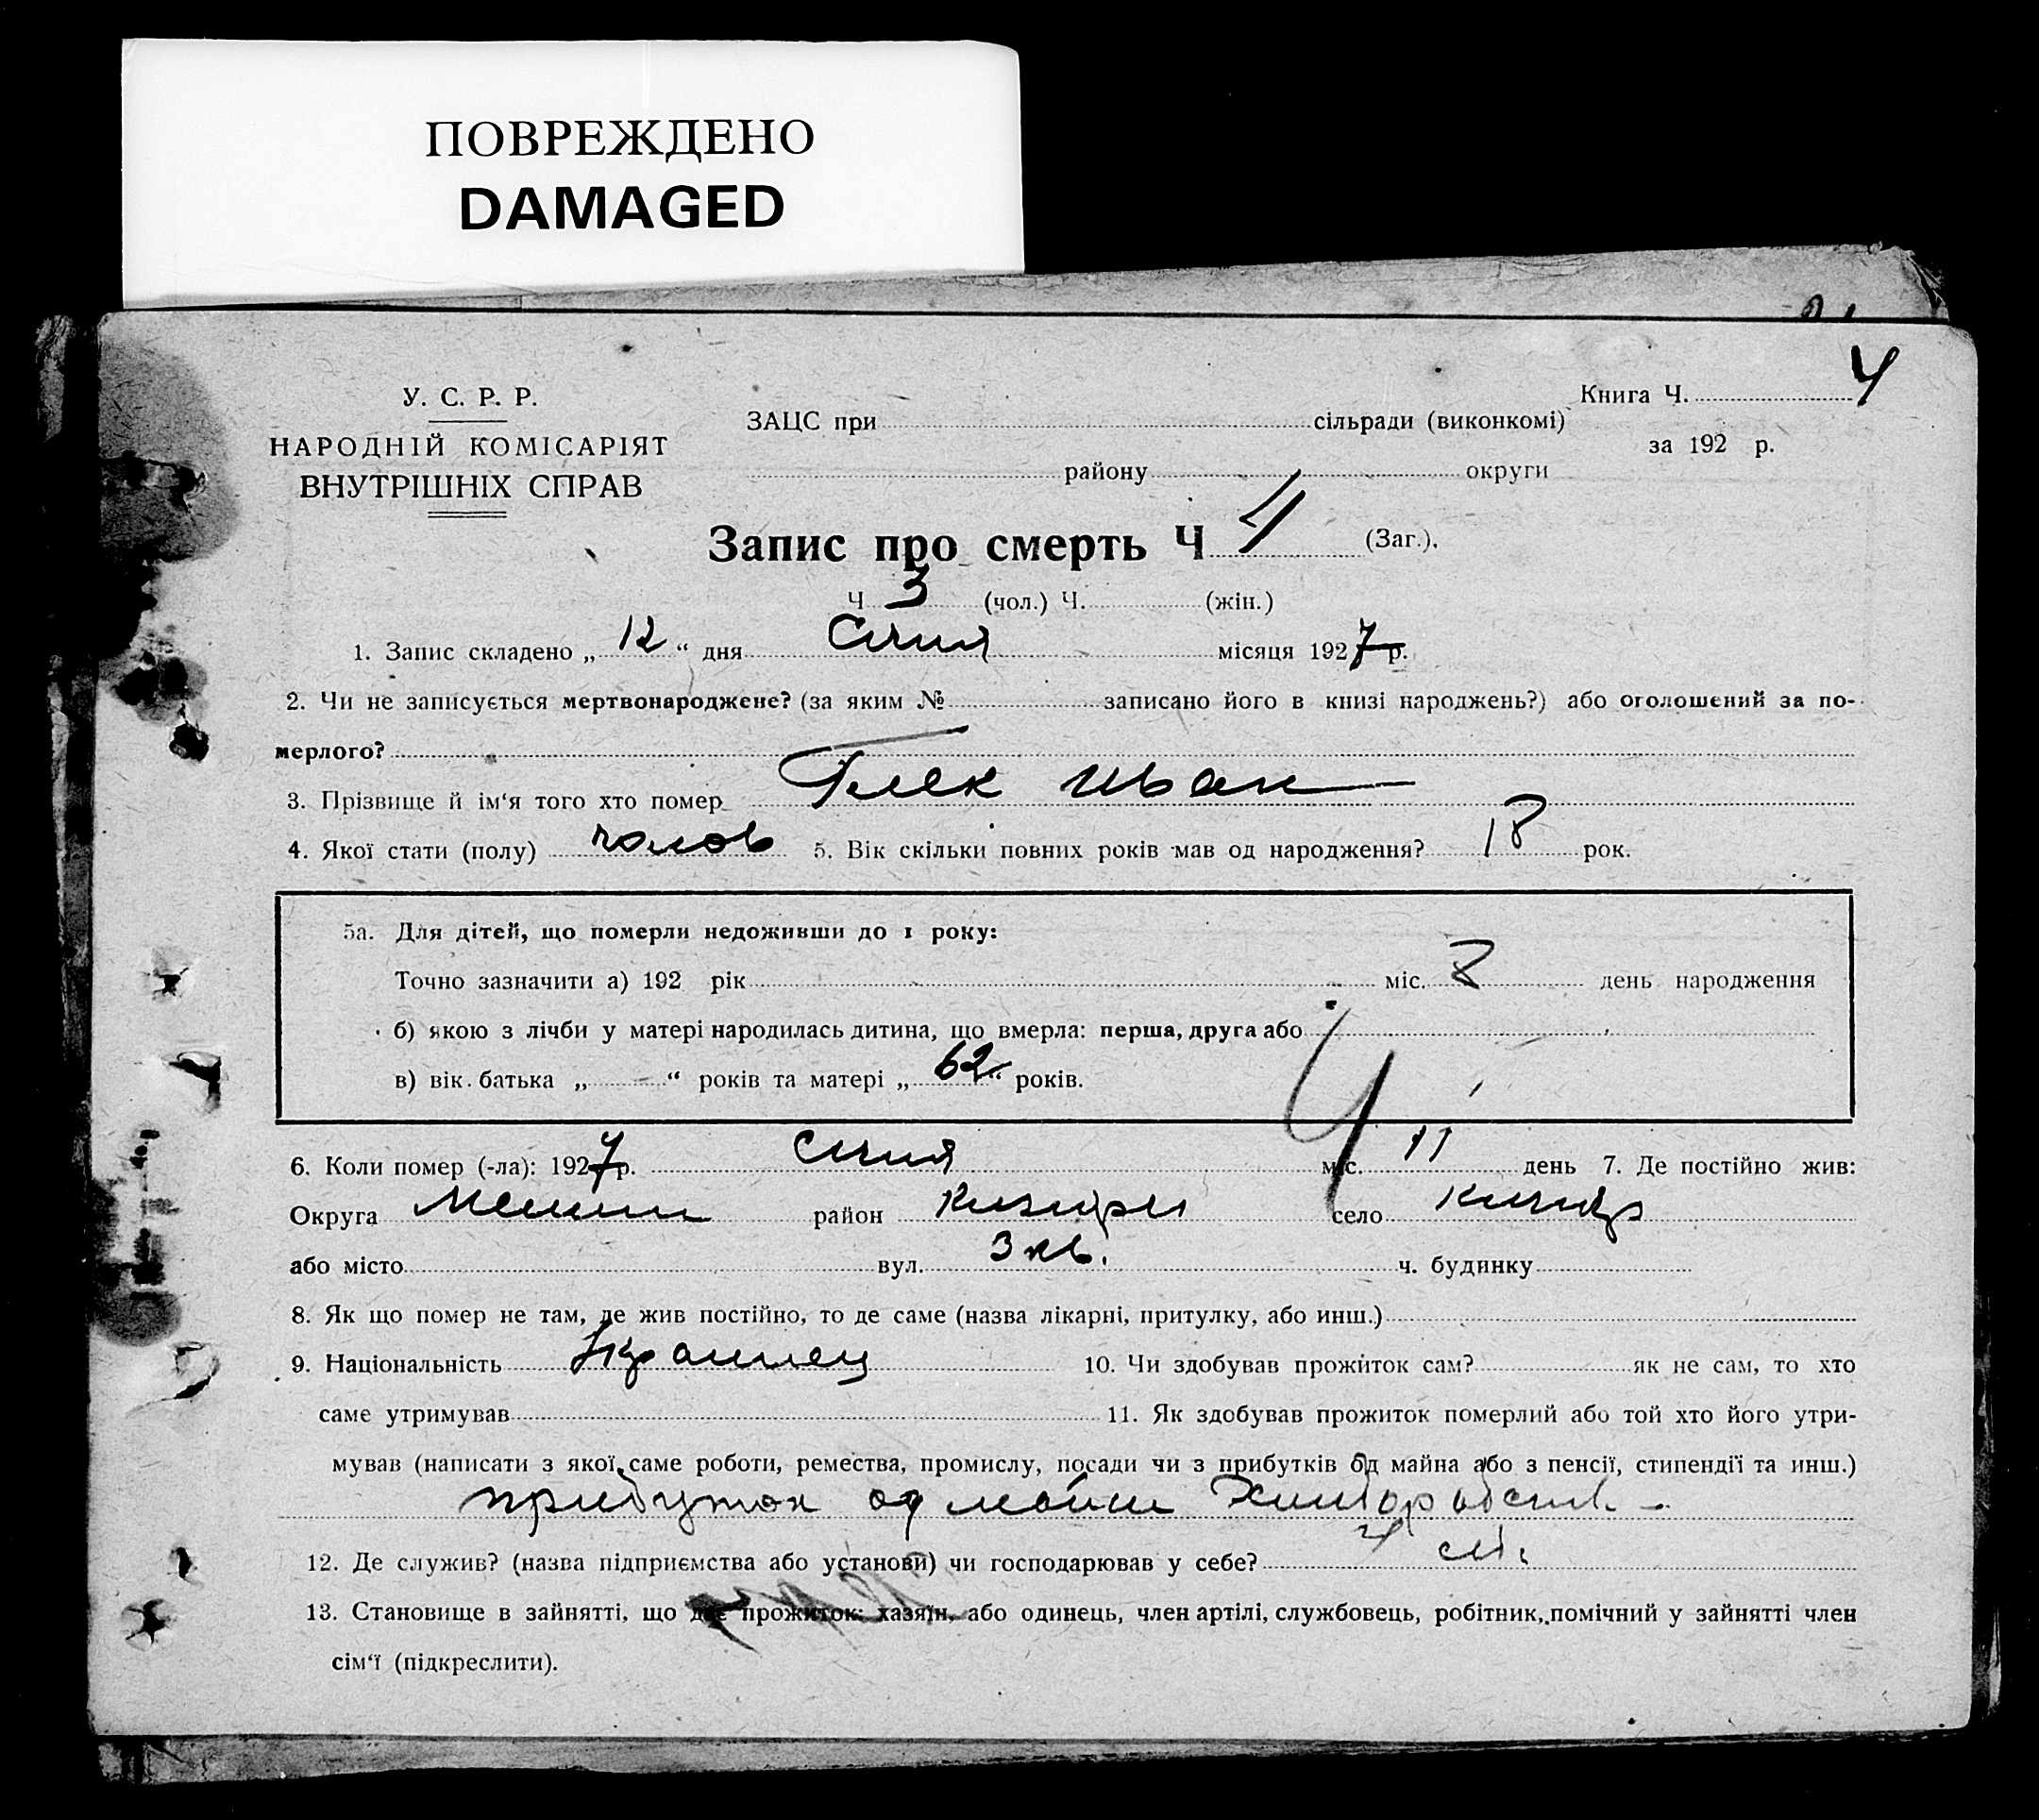 ПОВРЕЖДЕНО
DAMAGED
4
У. С. Р. Р.
НАРОДНІЙ КОМІСАРІЯТ
ВНУТРІШНІХ СПРАВ
Книга Ч.
ЗАЦС при сільради (виконкомі)
за 192 р.
району округи
Запис про смерть Ч 4 (Заг.).
Ч 3 (чол.) Ч. (жін.)
1. Запис складено „ 12 “ дня Січня місяця 1927 р.
2. Чи не записується мертвонароджене? (за яким № записано його в книзі народжень?) або оголошений за по-
мерлого?
3. Прізвище й ім‘я того хто помер Глек Иван
4. Якої стати (полу) чолов 5. Вік скільки повних років мав од народження? 18 рок.
5а. Для дітей, що померли недоживши до 1 року:
Точно зазначити а) 192 рік міс. 8 день народження
б) якою з лічби у матері народилась дитина, що вмерла: перша, друга або
в) вік батька „ “ років та матері „ 62 “ років.
4
6. Коли помер (-ла): 1927 р. Січня міс. 11 день 7. Де постійно жив:
Округа район село
або місто вул. 3 кв. ч. будинку
8. Як що помер не там, де жив постійно, то де саме (назва лікарні, притулку, або инш.)
9. Національність Украинец 10. Чи здобував прожиток сам? як не сам, то хто
саме утримував 11. Як здобував прожиток померлий або той хто його утри-
мував (написати з якої саме роботи, ремества, промислу, посади чи з прибутків од майна або з пенсії, стипендії та инш.)
прибуток од
12. Де служив? (назва підприємства або установи) чи господарював у себе?
13. Становище в зайнятті, що дає прожиток: хазяїн, або одинець, член артілі, службовець, робітник, помічний у зайнятті член
сім‘ї (підкреслити).